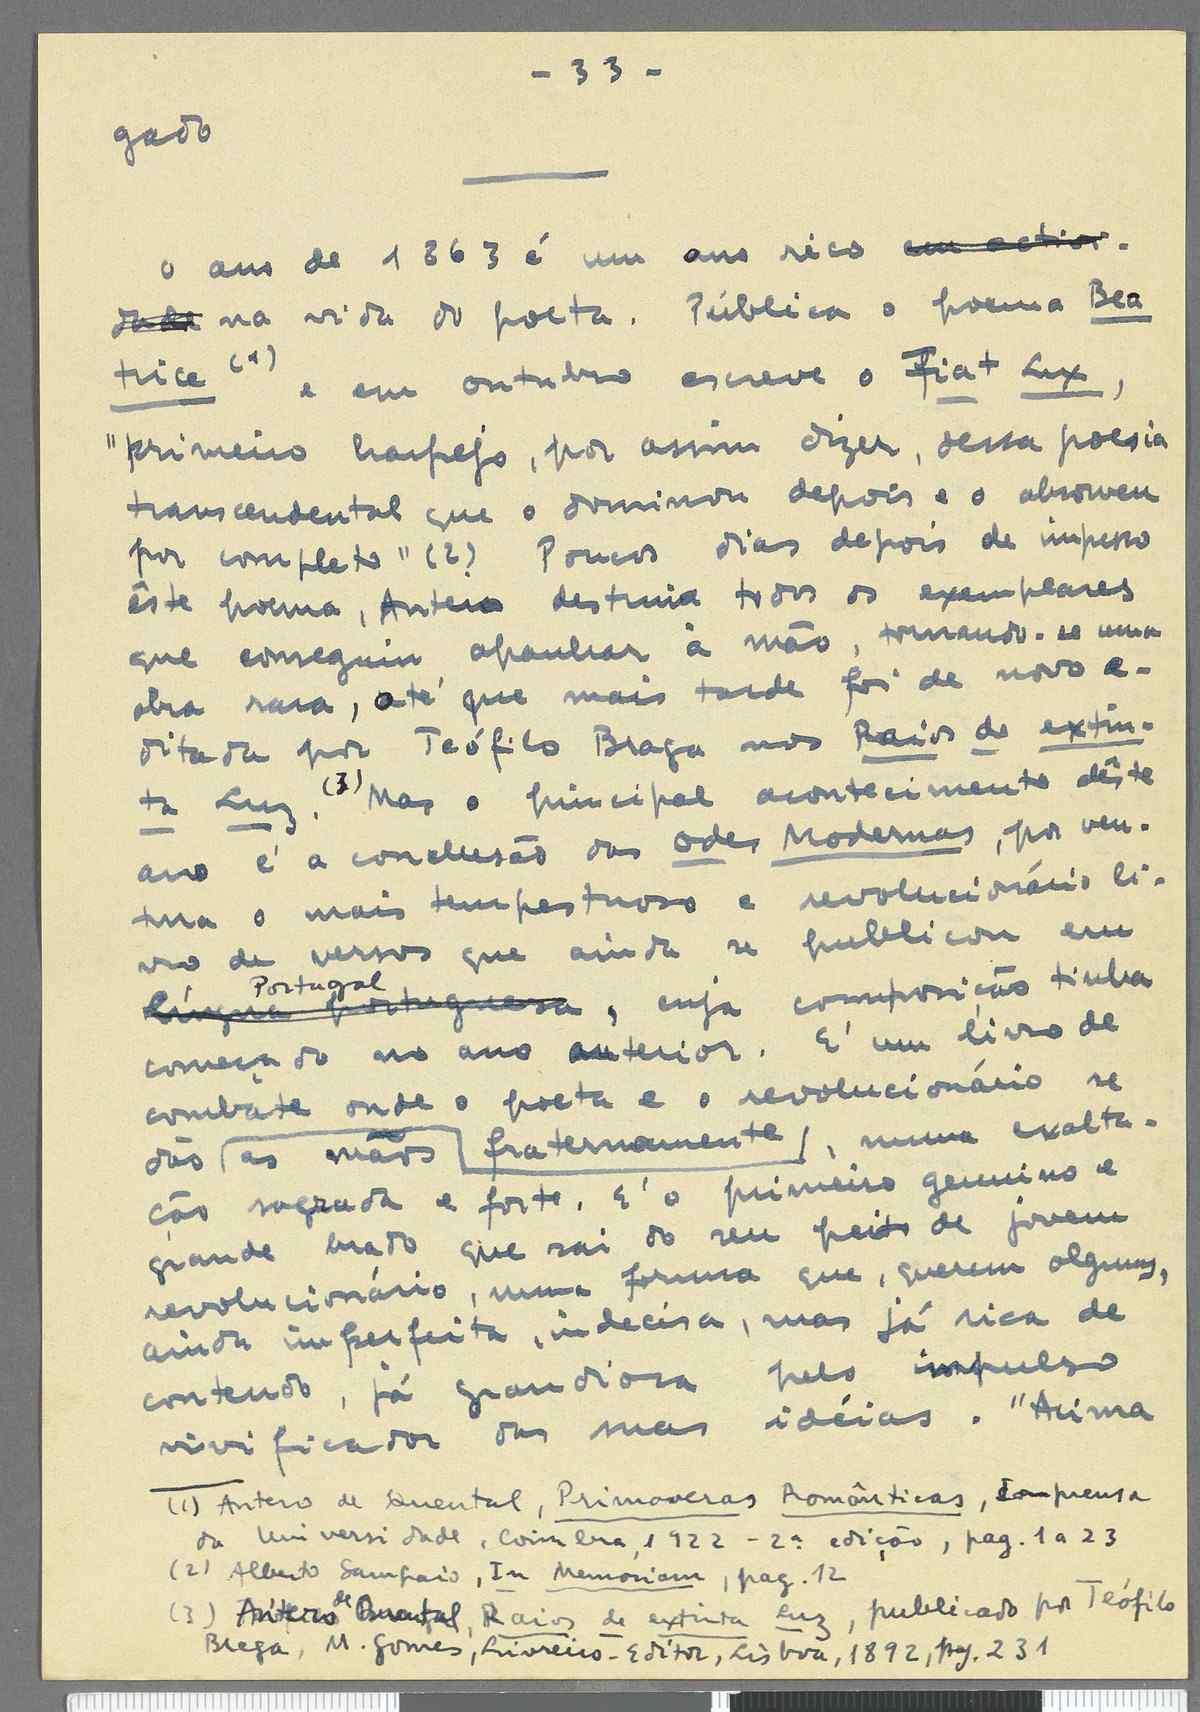 - 33 -
gado
O ano de 1863 é um ano rico em activi-
dade na vida do poeta. Pública o poema Bea
trice (1) e em outubro escreve o Fiat Lux,
"primeiro harpejo, por assim dizer, dessa poesia
transcendental que o dominou depois e o absorveu
por completo" (2) Poucos dias depois de impesso
êste poema, Antero destruia todos os exemplares
que conseguiu apanhar à mão, tornando-se uma
obra rara, até que mais tarde foi de novo e-
ditada por Teófilo Braga nos Raios de extin-
ta Luz. (3) Mas o principal acontecimento dêste
ano é a conclusão das Odes Modernas, por ven-
tura o mais tempestuoso e revolucionário li-
vro de versos que ainda se publicou em
Portugal
língua portuguesa, cuja composição tinha
começado no ano anterior. É um livro de
combate onde o poeta e o revolucionário se
dão as mãos fraternamente, numa exalta-
ção sagrada e forte. É o primeiro genuino e
grande brado que sai do seu peito de jovem
revolucionário, numa forma que, querem alguns,
ainda imperfeita, indecisa, mas já rica de
contendo, já grandiosa pelo impulso
vivificador das suas idéias. "Acima
(1) Antero de Quental, Primaveras Românticas, Imprensa
da Universidade, Coimbra, 1922 - 2ª edição, pag. 1 a 23
(2) Alberto Sampaio, In Memoriam, pag. 12
(3) Antero de Quental, Raios de extinta Luz, publicado por Teófilo
Braga, M. Gomes, Livreiro-Editor, Lisboa, 1892, pag. 231